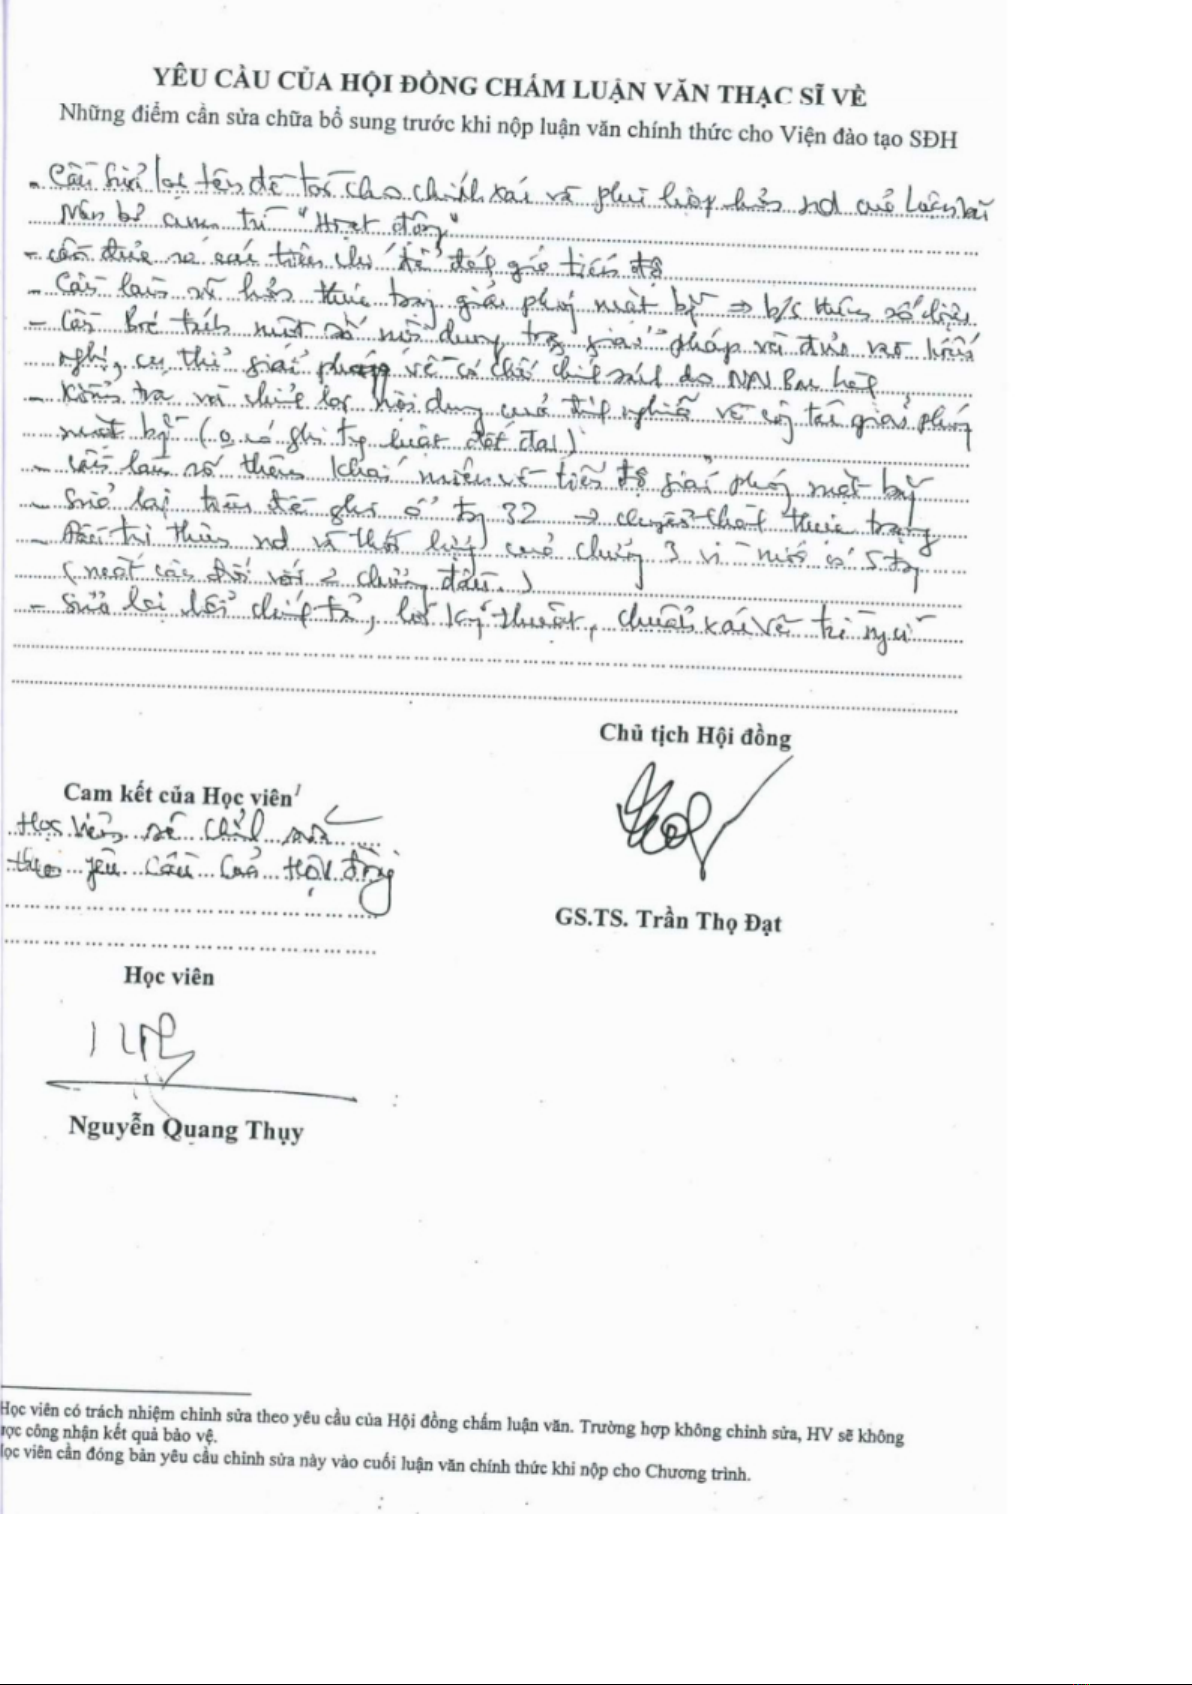 YÊU CẦU CỦA HỘI ĐỒNG CHẤM LUẬN VĂN THẠC SĨ VỀ
Những điểm cần sửa chữa bổ sung trước khi nộp luận văn chính thức cho Viện đào tạo SĐH
- Cần sửa lại tên đề tài cho chính xác và phù hợp hơn nd của luận văn
Nên bỏ cụm từ "Hoạt động"
- cần đưa ra các tiêu chí để đánh giá tiến độ
- Cần làm rõ hơn thực trạng giải phóng mặt bằng ⇒ b/s thêm số liệu
- Cần một số nội dung trg giải pháp và đưa vào kiến
nghị, cụ thể giải pháp về cơ chế chính sách do
- Kiểm tra và chỉnh lại nội dung của định nghĩa về công tác giải phóng
mặt bằng (0 có ghi trg luật đất đai)
- Cần làm rõ thêm khái niệm về tiến độ giải phóng mặt bằng
- Sửa lại tiêu đề ghi ở trg 32 → thực trạng
- thêm nd và thời lượng của chương 3 vì mới có 5 trg
(mất cân đối với 2 chương đầu.)
- Sửa lại lỗi chính tả, lỗi kỹ thuật, chuẩn xác về từ ngữ
Chủ tịch Hội đồng
Cam kết của Học viên
Học viên sẽ chỉnh sửa
theo yêu cầu của Hội đồng
GS.TS. Trần Thọ Đạt
Học viên
Nguyễn Quang Thụy
Học viên có trách nhiệm chỉnh sửa theo yêu cầu của Hội đồng chấm luận văn. Trường hợp không chỉnh sửa, HV sẽ không
ược công nhận kết quả bảo vệ.
ọc viên cần đóng bản yêu cầu chỉnh sửa này vào cuối luận văn chính thức khi nộp cho Chương trình.